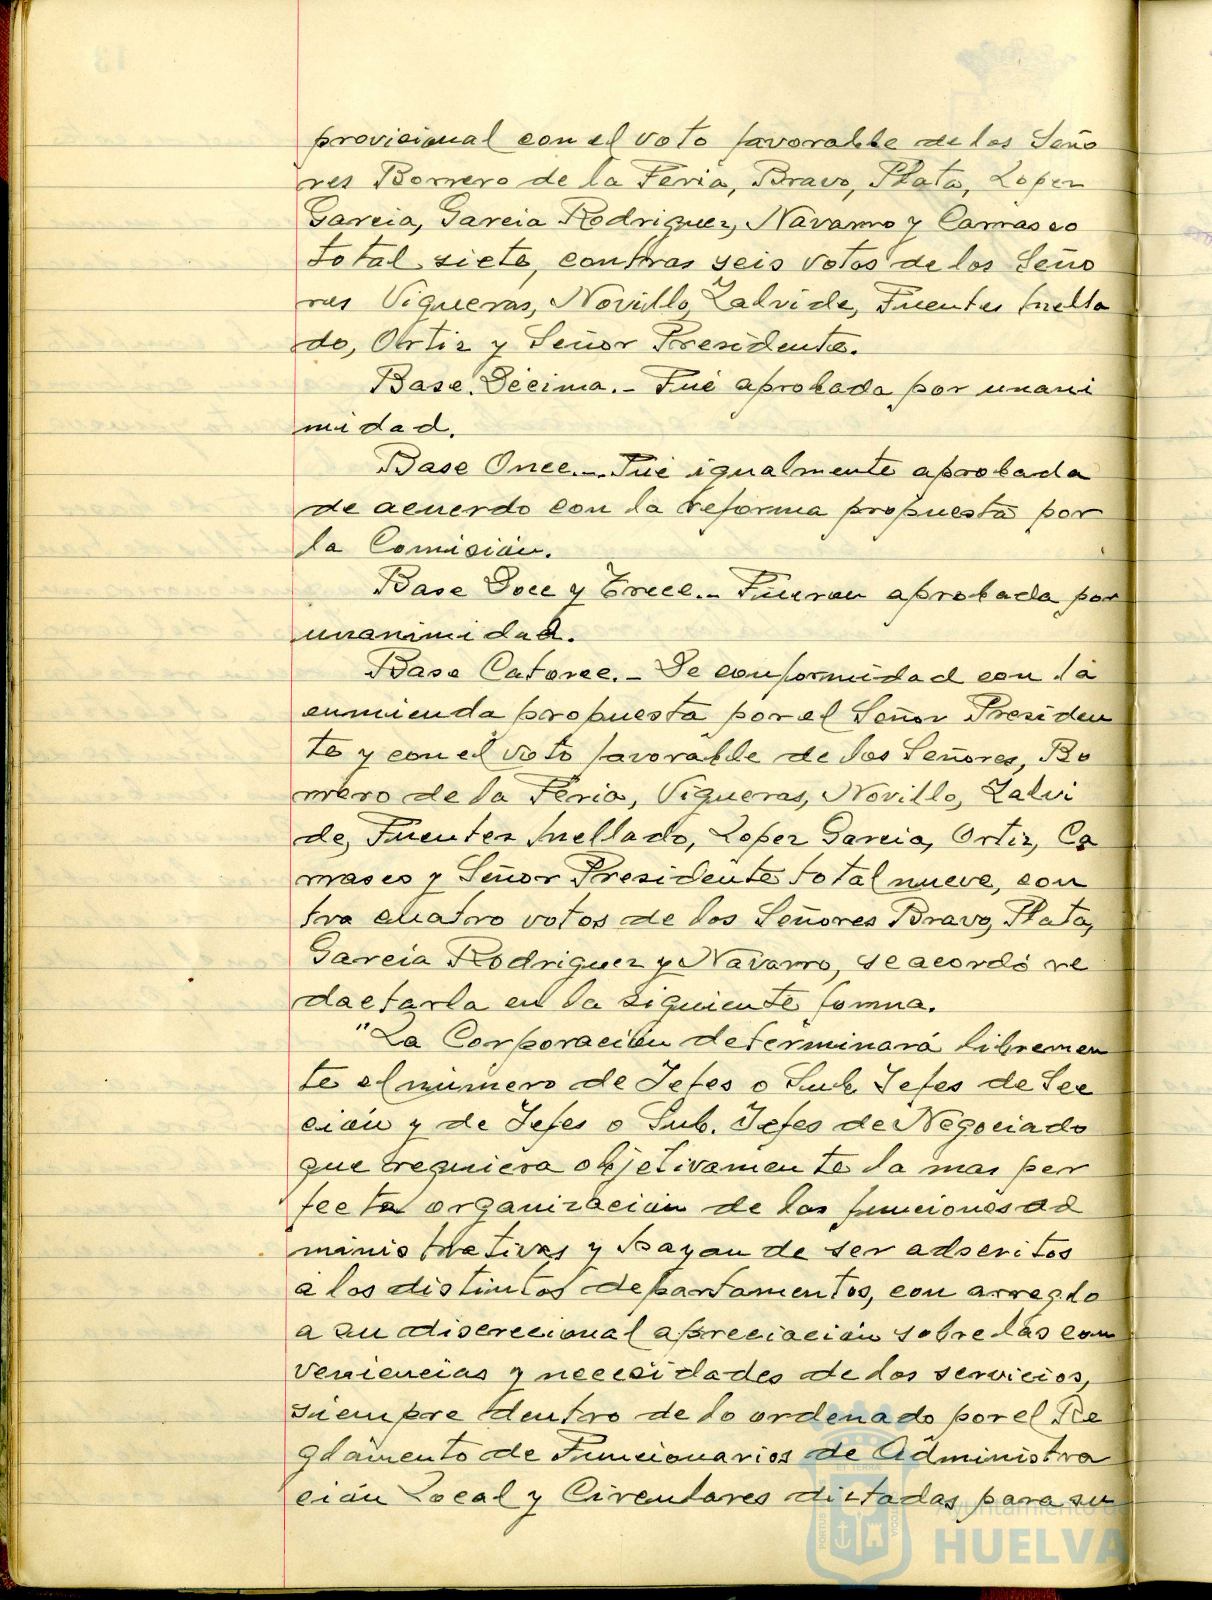 provicional con el voto favorable de los Seño
res Borrero de la Feria, Bravo, Plata, Lopez
Garcia, Garcia Rodriguez, Navarro y Carrasco
total siete, contras seis votos de los Seño
res Vigueras, Novillo, Zalvide, Fuentes Mella
do, Ortiz y Señor Presidente.
Base Décima.- Fué aprobada por unani
midad.
Base Once.- Fué igualmente aprobada
de acuerdo con la reforma propuesta por
la Comisión.
Base Doce y Trece.- Fueron aprobada por
unanimidad.
Base Catorce.- De conformidad con la
enmienda propuesta por el Señor Presiden
te y con el voto favorable de los Señores, Bo
rrero de la Feria, Vigueras, Novillo, Zalvi
de, Fuentes Mellado, Lopez Garcia, Ortiz, Ca
rrasco y Señor Presidente total nueve, con
tra cuatro votos de los Señores Bravo, Plata,
Garcia Rodriguez y Navarro, se acordó re
dactarla en la siguiente forma.
"La Corporación determinará libremen
te el número de Jefes o Sub Jefes de Sec
ción y de Jefes o Sub. Jefes de Negociado
que requiera objetivamente la mas per
fecta organización de las funciones ad
ministrativas y hayan de ser adscritos
a los distintos departamentos, con arreglo
a su discreccional apreciación sobre las con
veniencias y necesidades de los servicios,
siempre dentro de lo ordenado por el Re
glamento de Funcionarios de Administra
ción Local y Circulares dictadas para su
Ayuntamiento de
HUELVA